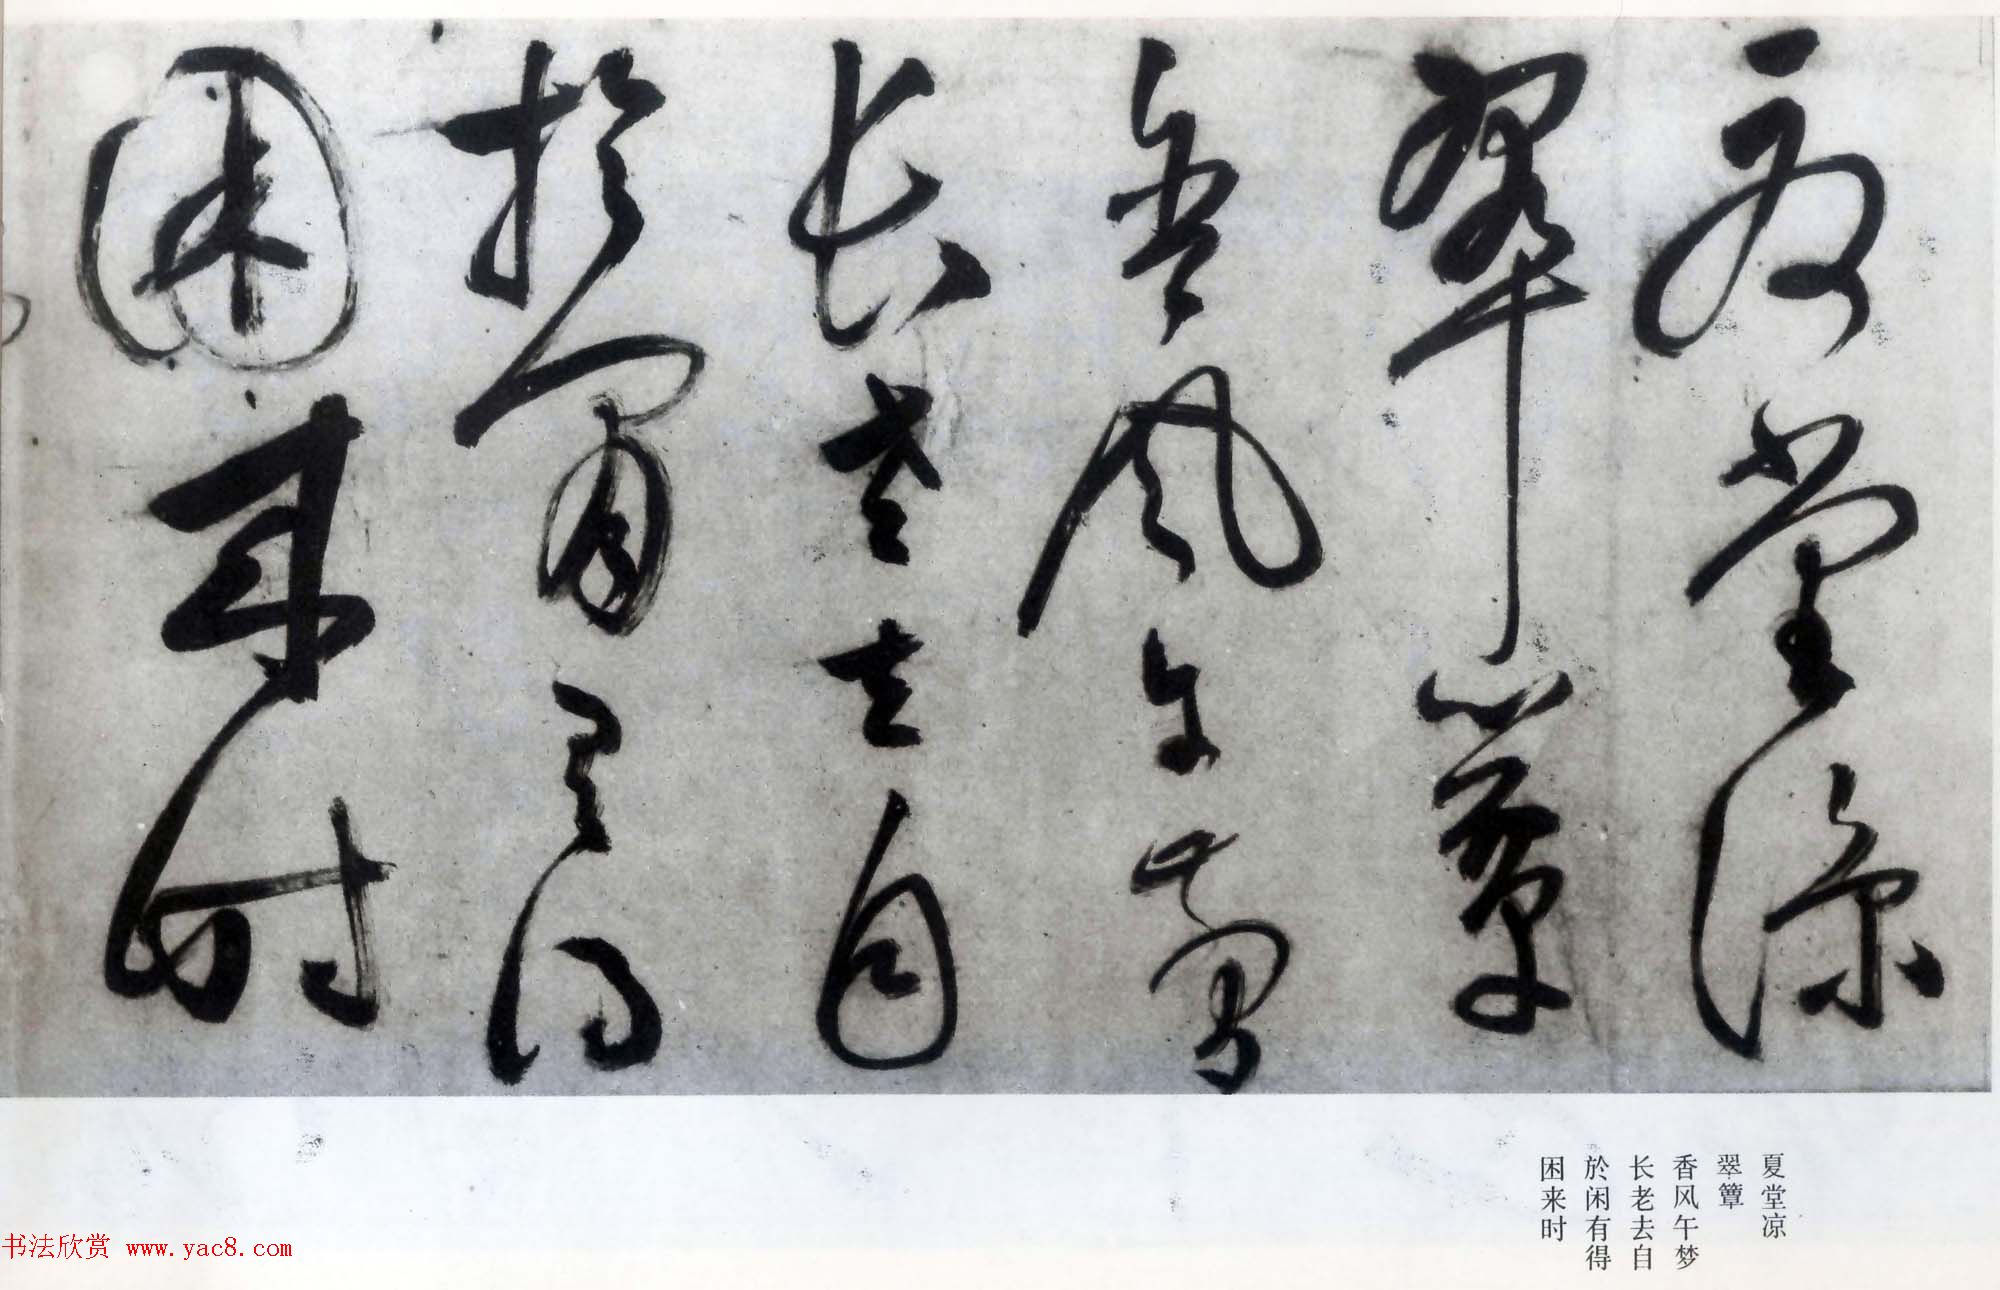 夏堂凉
翠簟
香风午梦
长老去自
於闲有得
困来时
夏堂凉
翠簟
香风午梦
长老去自
於闲有得
困来时
书法欣赏 www.yac8.com